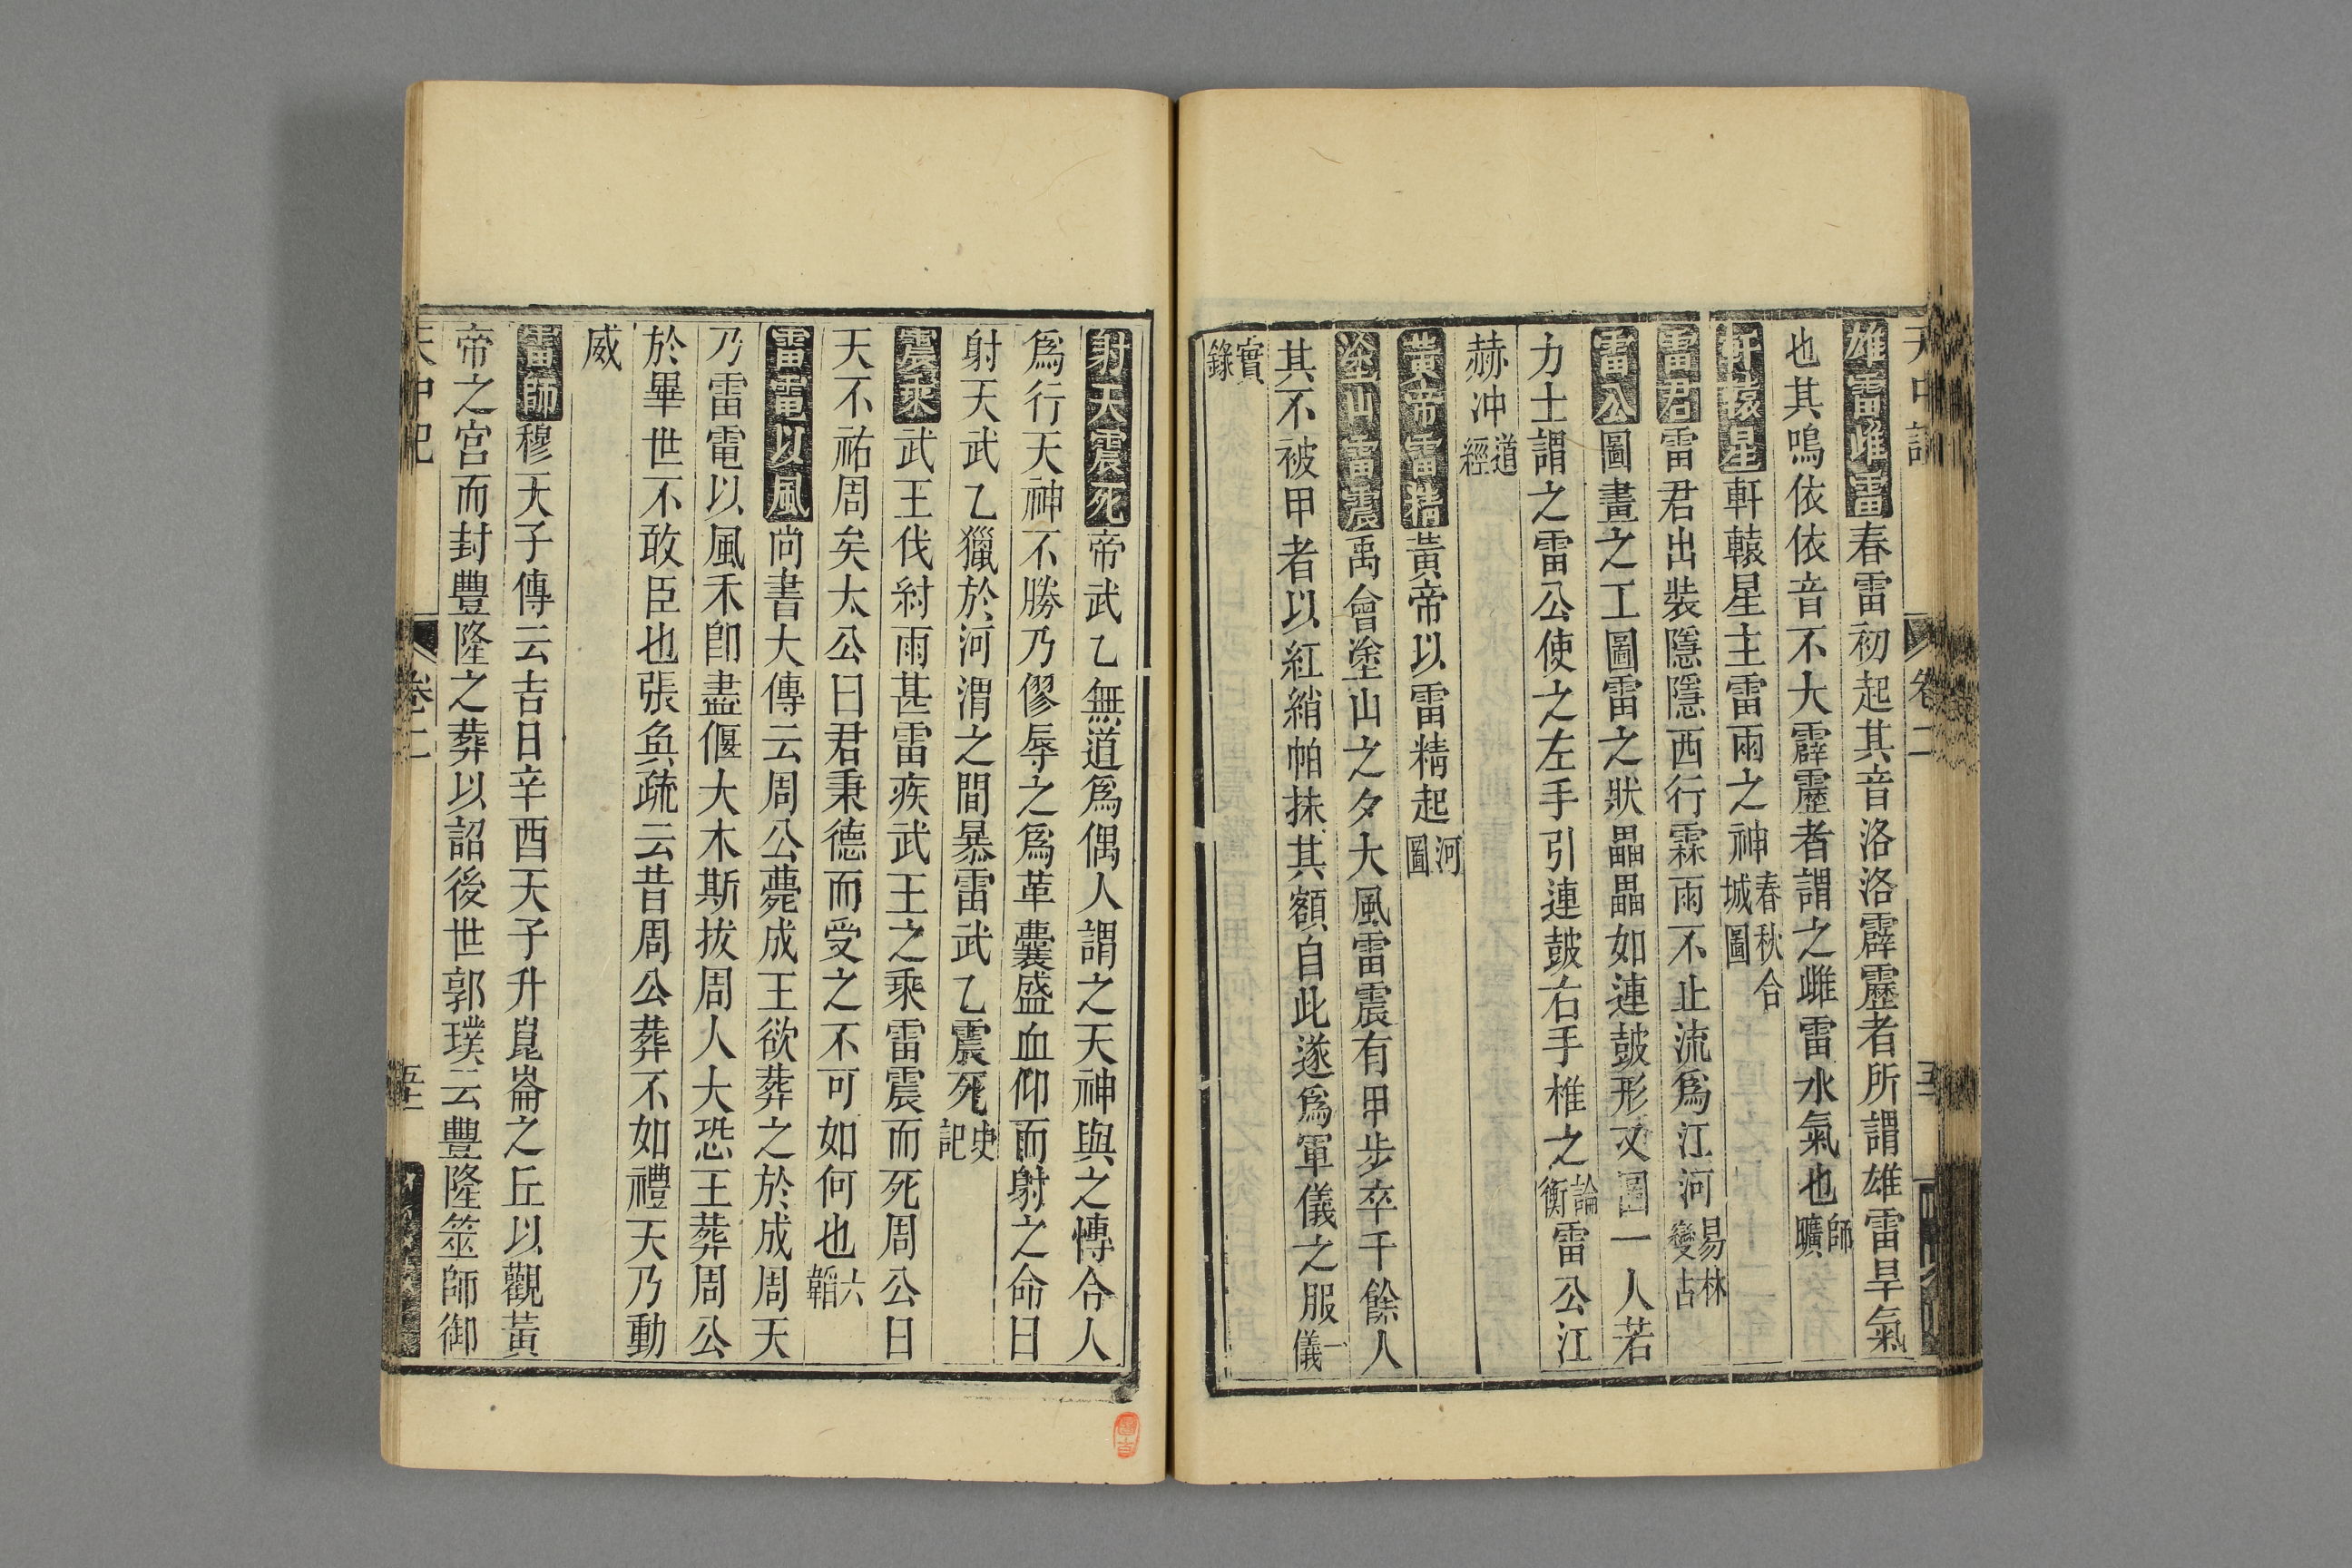 天中記 卷二 五
雄雷雌雷春雷初起其音洛洛霹靂者所謂雄雷旱氣
也其鳴依依音不大霹靂者謂之雌雷水氣也師曠
軒轅星軒轅星主雷雨之神春秋合城圖
雷君雷君出裝隱隱西行霖雨不止流爲江河易林變占
雷公圖畫之工圖雷之狀畾畾如連鼓形又圖一人若
力士謂之雷公使之左手引連鼓右手椎之論衡雷公江
赫冲道經
黃帝雷精黃帝以雷精起河圖
塗山雷震禹會塗山之夕大風雷震有甲步卒千餘人
其不被甲者以紅綃帕抹其額自此遂爲軍儀之服二儀
實錄
射天震死帝武乙無道爲偶人謂之天神與之慱令人
爲行天神不勝乃僇辱之爲革囊盛血仰而射之命曰
射天武乙獵於河渭之間暴雷武乙震死史記
震乘武王伐紂雨甚雷疾武王之乘雷震而死周公曰
天不祐周矣太公曰君秉德而受之不可如何也六韜
雷電以風尚書大傳云周公薨成王欲葬之於成周天
乃雷電以風禾卽盡偃大木斯拔周人大恐王葬周公
於畢世不敢臣也張奐疏云昔周公葬不如禮天乃動
威
雷師穆天子傳云吉日辛酉天子升崑崙之丘以觀黃
帝之宮而封豐隆之葬以詔後世郭璞云豐隆筮師御
天中記 卷二 五